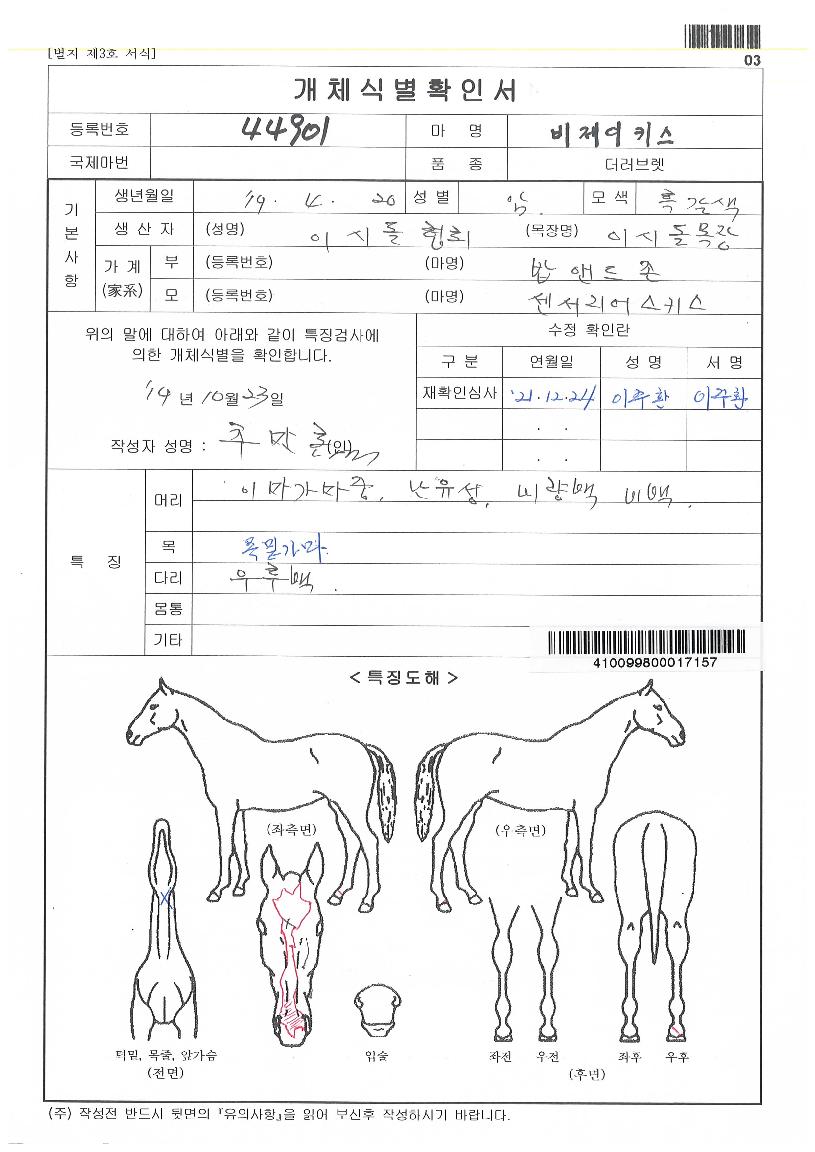 [별지 제3호 서식]
03
개체식별확인서
등록번호 44901 마 명 비제이키스
국제마번 품 종 더러브렛
기본사항
생년월일 '19. 4. 20 성별 암. 모색 흑갈색
생산자 (성명) 이시돌협회 (목장명) 이시돌목장
가계 (家系) 부 (등록번호) (마명) 밥앤드존
모 (등록번호) (마명) 센서리어스키스
위의 말에 대하여 아래와 같이 특징검사에
의한 개체식별을 확인합니다.
'19년 10월 23일
작성자 성명 : (인)
수정 확인란
구분 연월일 성명 서명
재확인심사 '21.12.24 이주환 이주환
. .
. .
특 징
머리 이마가마중, 난유성, 비량백 비백.
목 목밑가마.
다리 우후백.
몸통
기타
410099800017157
< 특징도해 >
(좌측면) (우측면)
턱밑, 목줄, 앞가슴
(전면)
입술
좌전 우전 좌후 우후
(후면)
(주) 작성전 반드시 뒷면의 『유의사항』을 읽어 보신후 작성하시기 바랍니다.